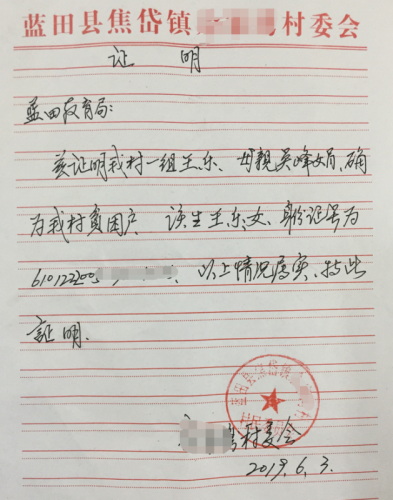 蓝田县焦岱镇 村委会
证 明
蓝田教育局:
兹证明我村一组王乐、母親吴峰娟,确
为我村貧困户. 该生王乐,女、身份证号为
610122200 以上情况属实.特此
証明.
蓝田县焦岱镇
村委会
2019.6.3.